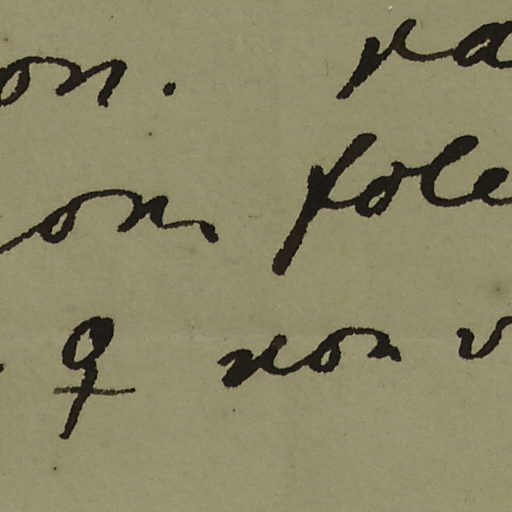 on. ra
on. fole
ꝗ non v